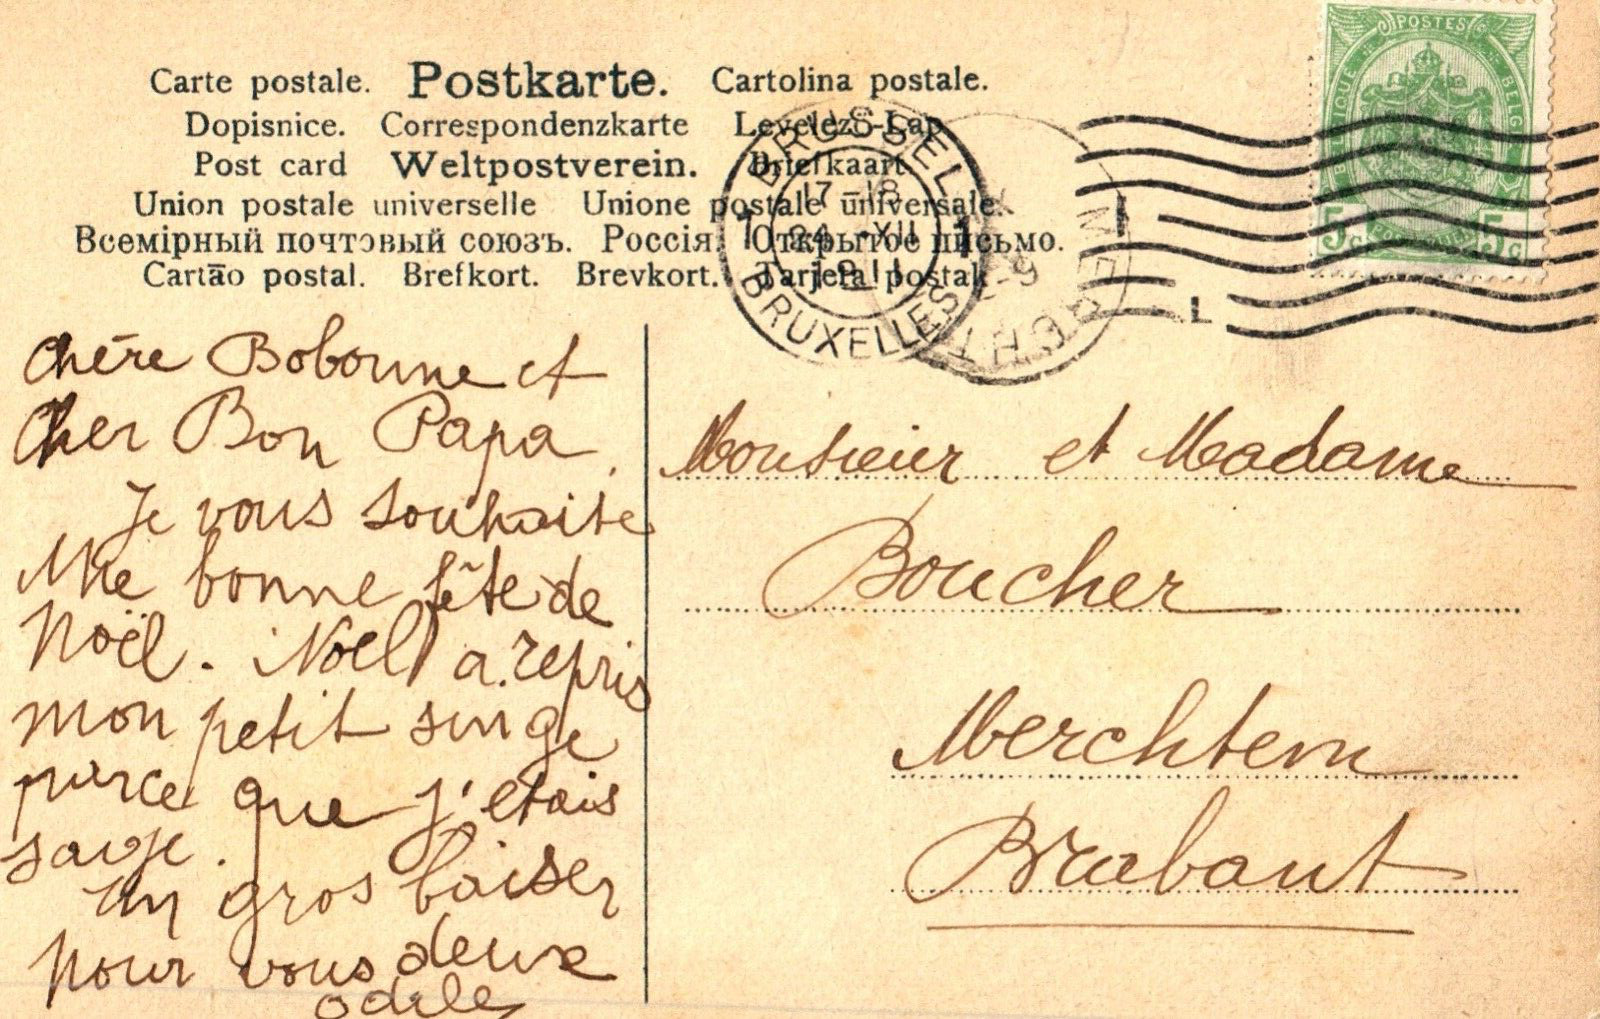 Carte postale. Postkarte. Cartolina postale.
Dopisnice. Correspondenzkarte Levelező-Lap
Post card Weltpostverein. Briefkaart.
Union postale universelle Unione postale universale.
Всемірный почтовый союзъ. Россія. Открытое письмо.
Cartāo postal. Brefkort. Brevkort. Tarjeta postak
POSTES
BELGIQUE BELGIE
5c 5c
BRUSSEL
1 17-18 1
24 -XII
1911
BRUXELLES
MERCHT
9
1
L
Chère Bobonne et
Cher Bon Papa.
Je vous souhaite
Une bonne fête de
Noël. Noël a repris
mon petit singe
parce que j'etais
sage.
Un gros baiser
Pour vous deux
odile
Monsieur et Madame
Boucher
Merchtem
Brabant